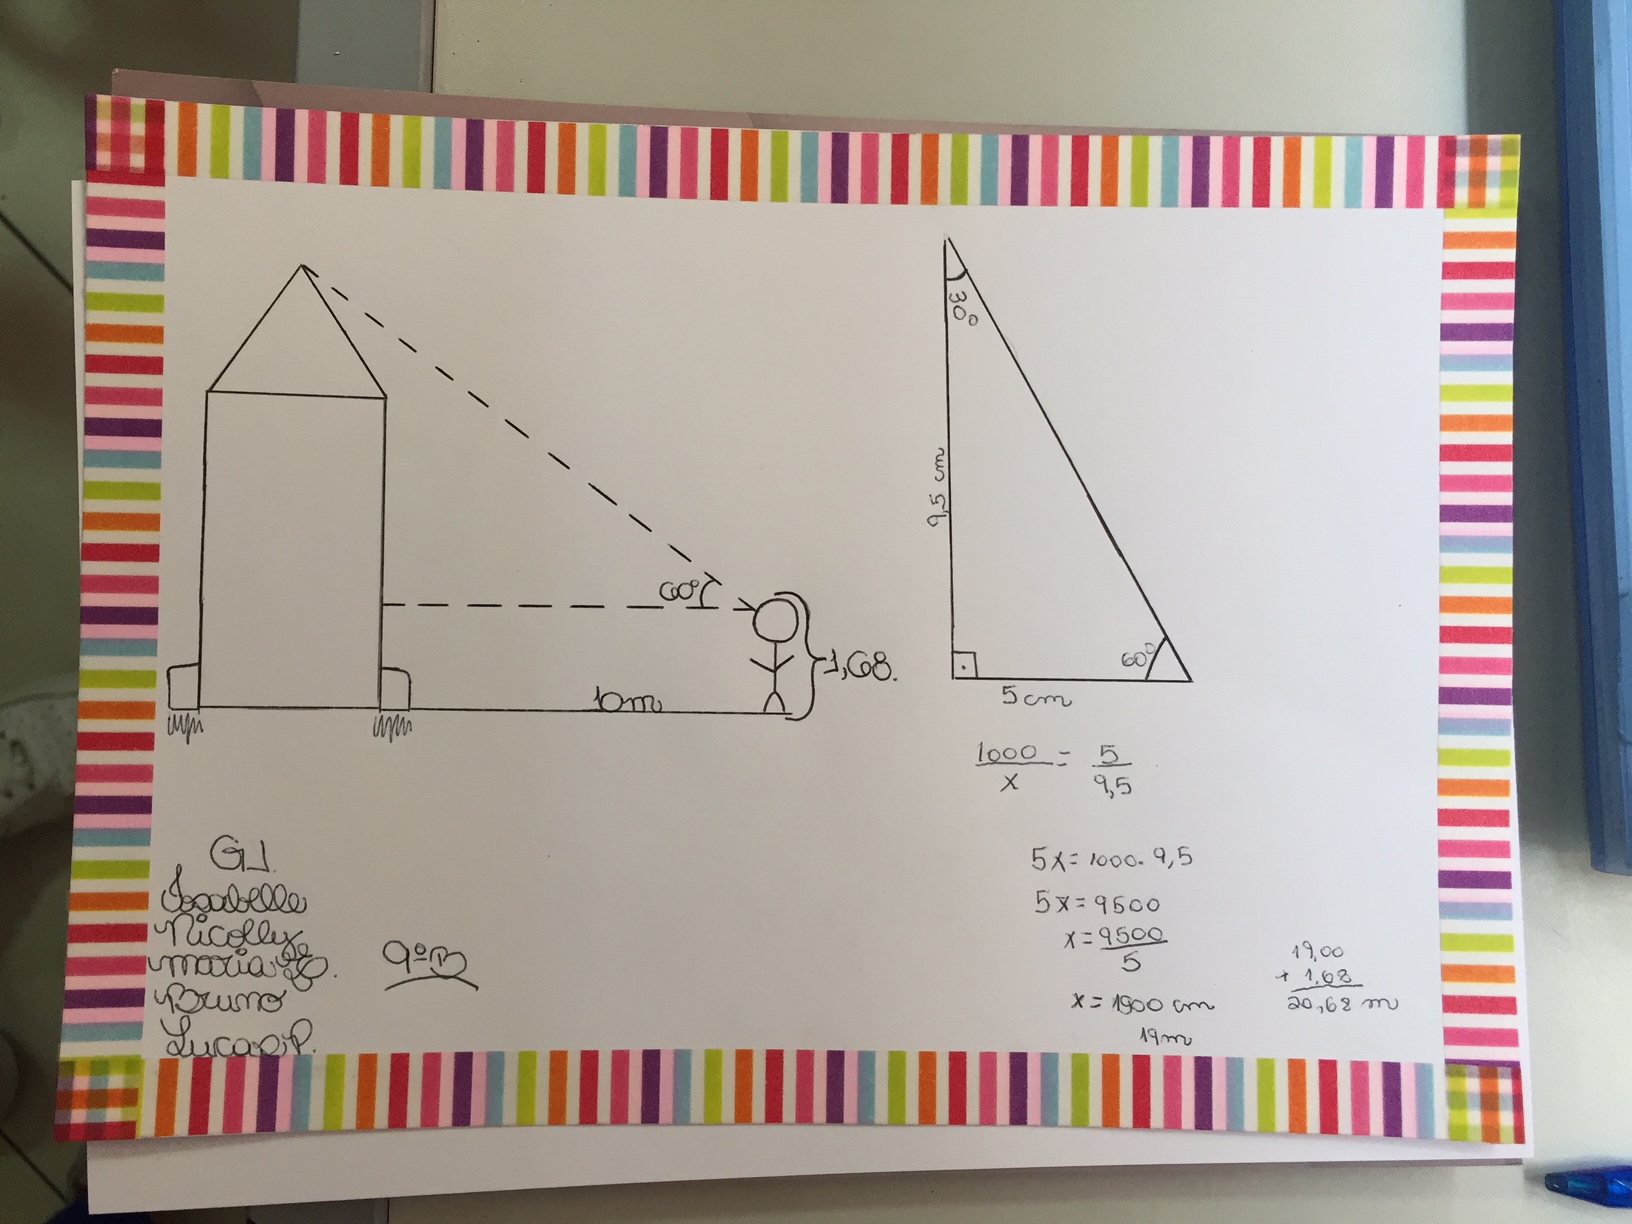 60°
10m
1,68.
30°
9,5 cm
60°
5cm
1000/x = 5/9,5
5x = 1000. 9,5
5x = 9500
x = 9500/5
x = 1900 cm
19m
19,00
+ 1,68
20,68 m
G1.
Isabelle
Nicolly
maria
Bruno
Lucas P.
9ºB